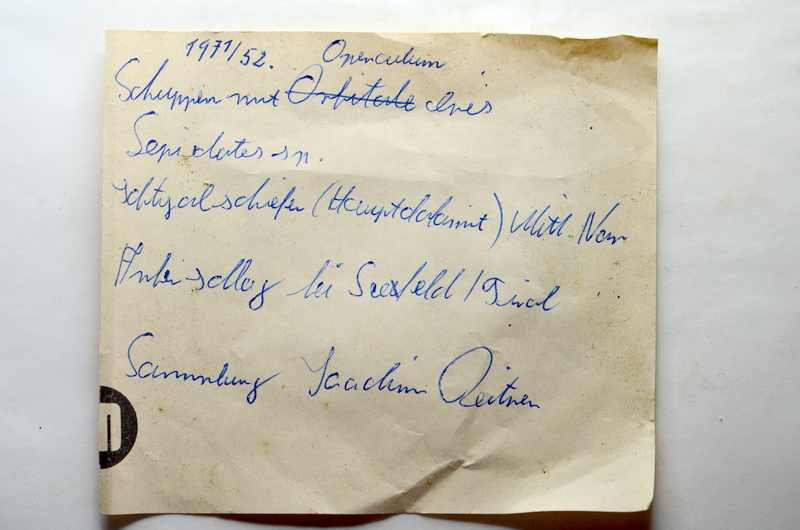 1971/52. Operculum
Schuppen mit Orbitale eines
Lepidotes sp.
Ichtyolschiefer (Hauptdolomit) Mitt. Nor
bei Seefeld / Tirol
Sammlung Joachim Reitner